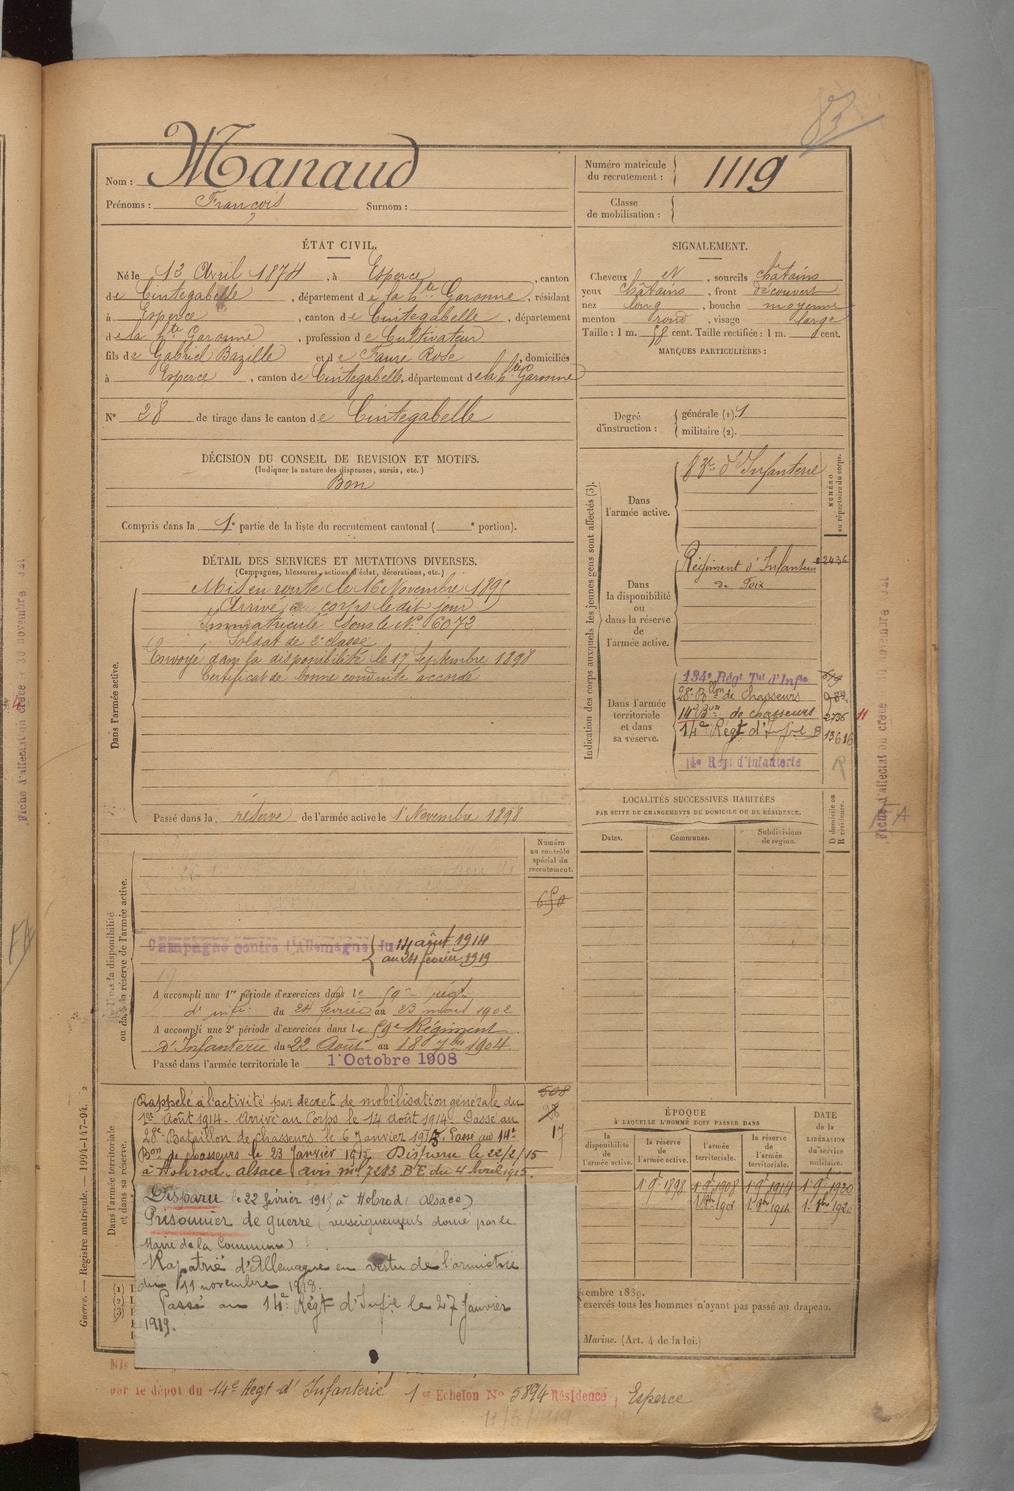 83
Nom : Manaud
Prénoms : François Surnom :
Numéro matricule du recrutement : 1119
Classe de mobilisation :
ÉTAT CIVIL.
Né le 13 Avril 1874, à Esperce, canton
de Cintegabelle, département de la hte Garonne, résidant
à Esperce, canton de Cintegabelle, département
de la hte Garonne, profession de Cultivateur
fils de Gabriel Bazille et de Faure Rose, domiciliés
à Esperce, canton de Cintegabelle, département de la hte Garonne
N° 28 de tirage dans le canton de Cintegabelle
SIGNALEMENT.
Cheveux et, sourcils châtains
yeux châtains, front découvert
nez long, bouche moyenne
menton rond, visage large
Taille : 1 m. 58 cent. Taille rectifiée : 1 m. cent.
MARQUES PARTICULIÈRES :
Degré d'instruction : générale (1). 1
militaire (2).
DÉCISION DU CONSEIL DE REVISION ET MOTIFS.
(Indiquer la nature des dispenses, sursis, etc.)
Bon
Compris dans la 1e partie de la liste du recrutement cantonal ( e portion).
DÉTAIL DES SERVICES ET MUTATIONS DIVERSES.
(Campagnes, blessures, actions d'éclat, décorations, etc.)
Dans l'armée active.
Mis en route le 16 Novembre 1895
Arrivé au corps le dit jour
Immatriculé sous le N° 6072
Soldat de 2e classe
Envoyé dans la disponibilité le 17 Septembre 1898
Certificat de bonne conduite accordé
Passé dans la réserve de l'armée active le 1 Novembre 1898
Indication des corps auxquels les jeunes gens sont affectés (3).
NUMÉRO au répertoire du corps.
Dans l'armée active.
83e d'Infanterie
Dans la disponibilité ou dans la réserve de l'armée active.
Régiment d'Infanterie 2436
de Foix
Dans l'armée territoriale et dans sa réserve.
134e Régt Tal d'Infie
28e Bon de chasseurs
14e Bon de chasseurs 2736
14e Régt d'Infie B 13616
14e Régt d'Infanterie R
LOCALITÉS SUCCESSIVES HABITÉES
PAR SUITE DE CHANGEMENTS DE DOMICILE OU DE RÉSIDENCE.
Dates. Communes. Subdivisions de région. D domicile ou R résidence.
Numéro au contrôle spécial du recrutement.
ou dans la réserve de l'armée active.
Campagne contre l'Allemagne du 14 août 1914
au 24 février 1919
A accompli une 1re période d'exercices dans le 59e régt
d'infie du 24 février au 23 mars 1902
A accompli une 2e période d'exercices dans le 59e Régiment
d'Infanterie du 22 Août au 18 7bre 1904
Passé dans l'armée territoriale le 1er Octobre 1908
Dans l'armée territoriale et dans sa réserve.
508
17
Rappelé à l'activité par décret de mobilisation générale du
1er Août 1914. Arrivé au Corps le 14 août 1914. Passé au
28e Bataillon de chasseurs le 6 Janvier 1915. Passé au 14e
Bon de chasseurs le 23 Janvier 1915. Disparu le 22/2/15
à Hohrod. alsace avis mel 7283 BE du 4 Avril 1915.
Disparu le 22 février 1915 à Hohrod (Alsace)
Prisonnier de guerre (renseignements donné par le
Maire de la Commune)
Rapatrié d'Allemagne en vertu de l'armistice
du 11 novembre 1918.
Passé au 14e Régt d'Infie le 27 Janvier
1919.
ÉPOQUE
À LAQUELLE L'HOMME DOIT PASSER DANS
la disponibilité de l'armée active. la réserve de l'armée active. l'armée territoriale. la réserve de l'armée territoriale.
DATE DE LA LIBÉRATION du service militaire.
1 9bre 1898 1 9bre 1908 1 9bre 1914 1 9bre 1920
cembre 1889.
exercés tous les hommes n'ayant pas passé au drapeau.
Marine. (Art. 4 de la loi.)
Guerre. — Registre matricule. 1094-147-94.
par le dépôt du 14e Régt d'Infanterie 1er Echelon N° 5894 Résidence, Esperce
11/3/1919